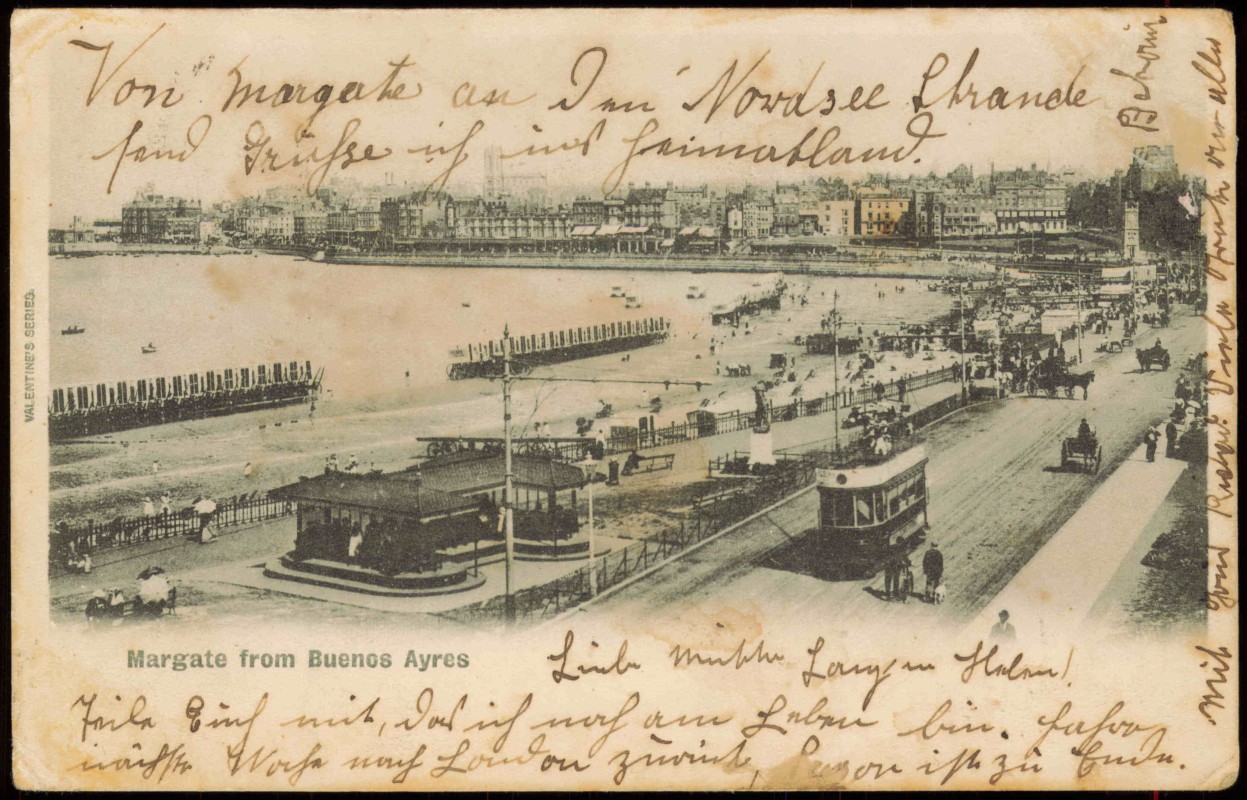 Von Margate an Den Nordsee Strande
send Grüsse ich ins Heimatland.
VALENTINE'S SERIES.
Margate from Buenos Ayres
Liebe Mutter und Helen!
Teile Euch mit, das ich noch am Leben bin. Fahre
nächste Woche nach London zurück, Saison ist zu Ende.
Mit Gruss Viele an alle